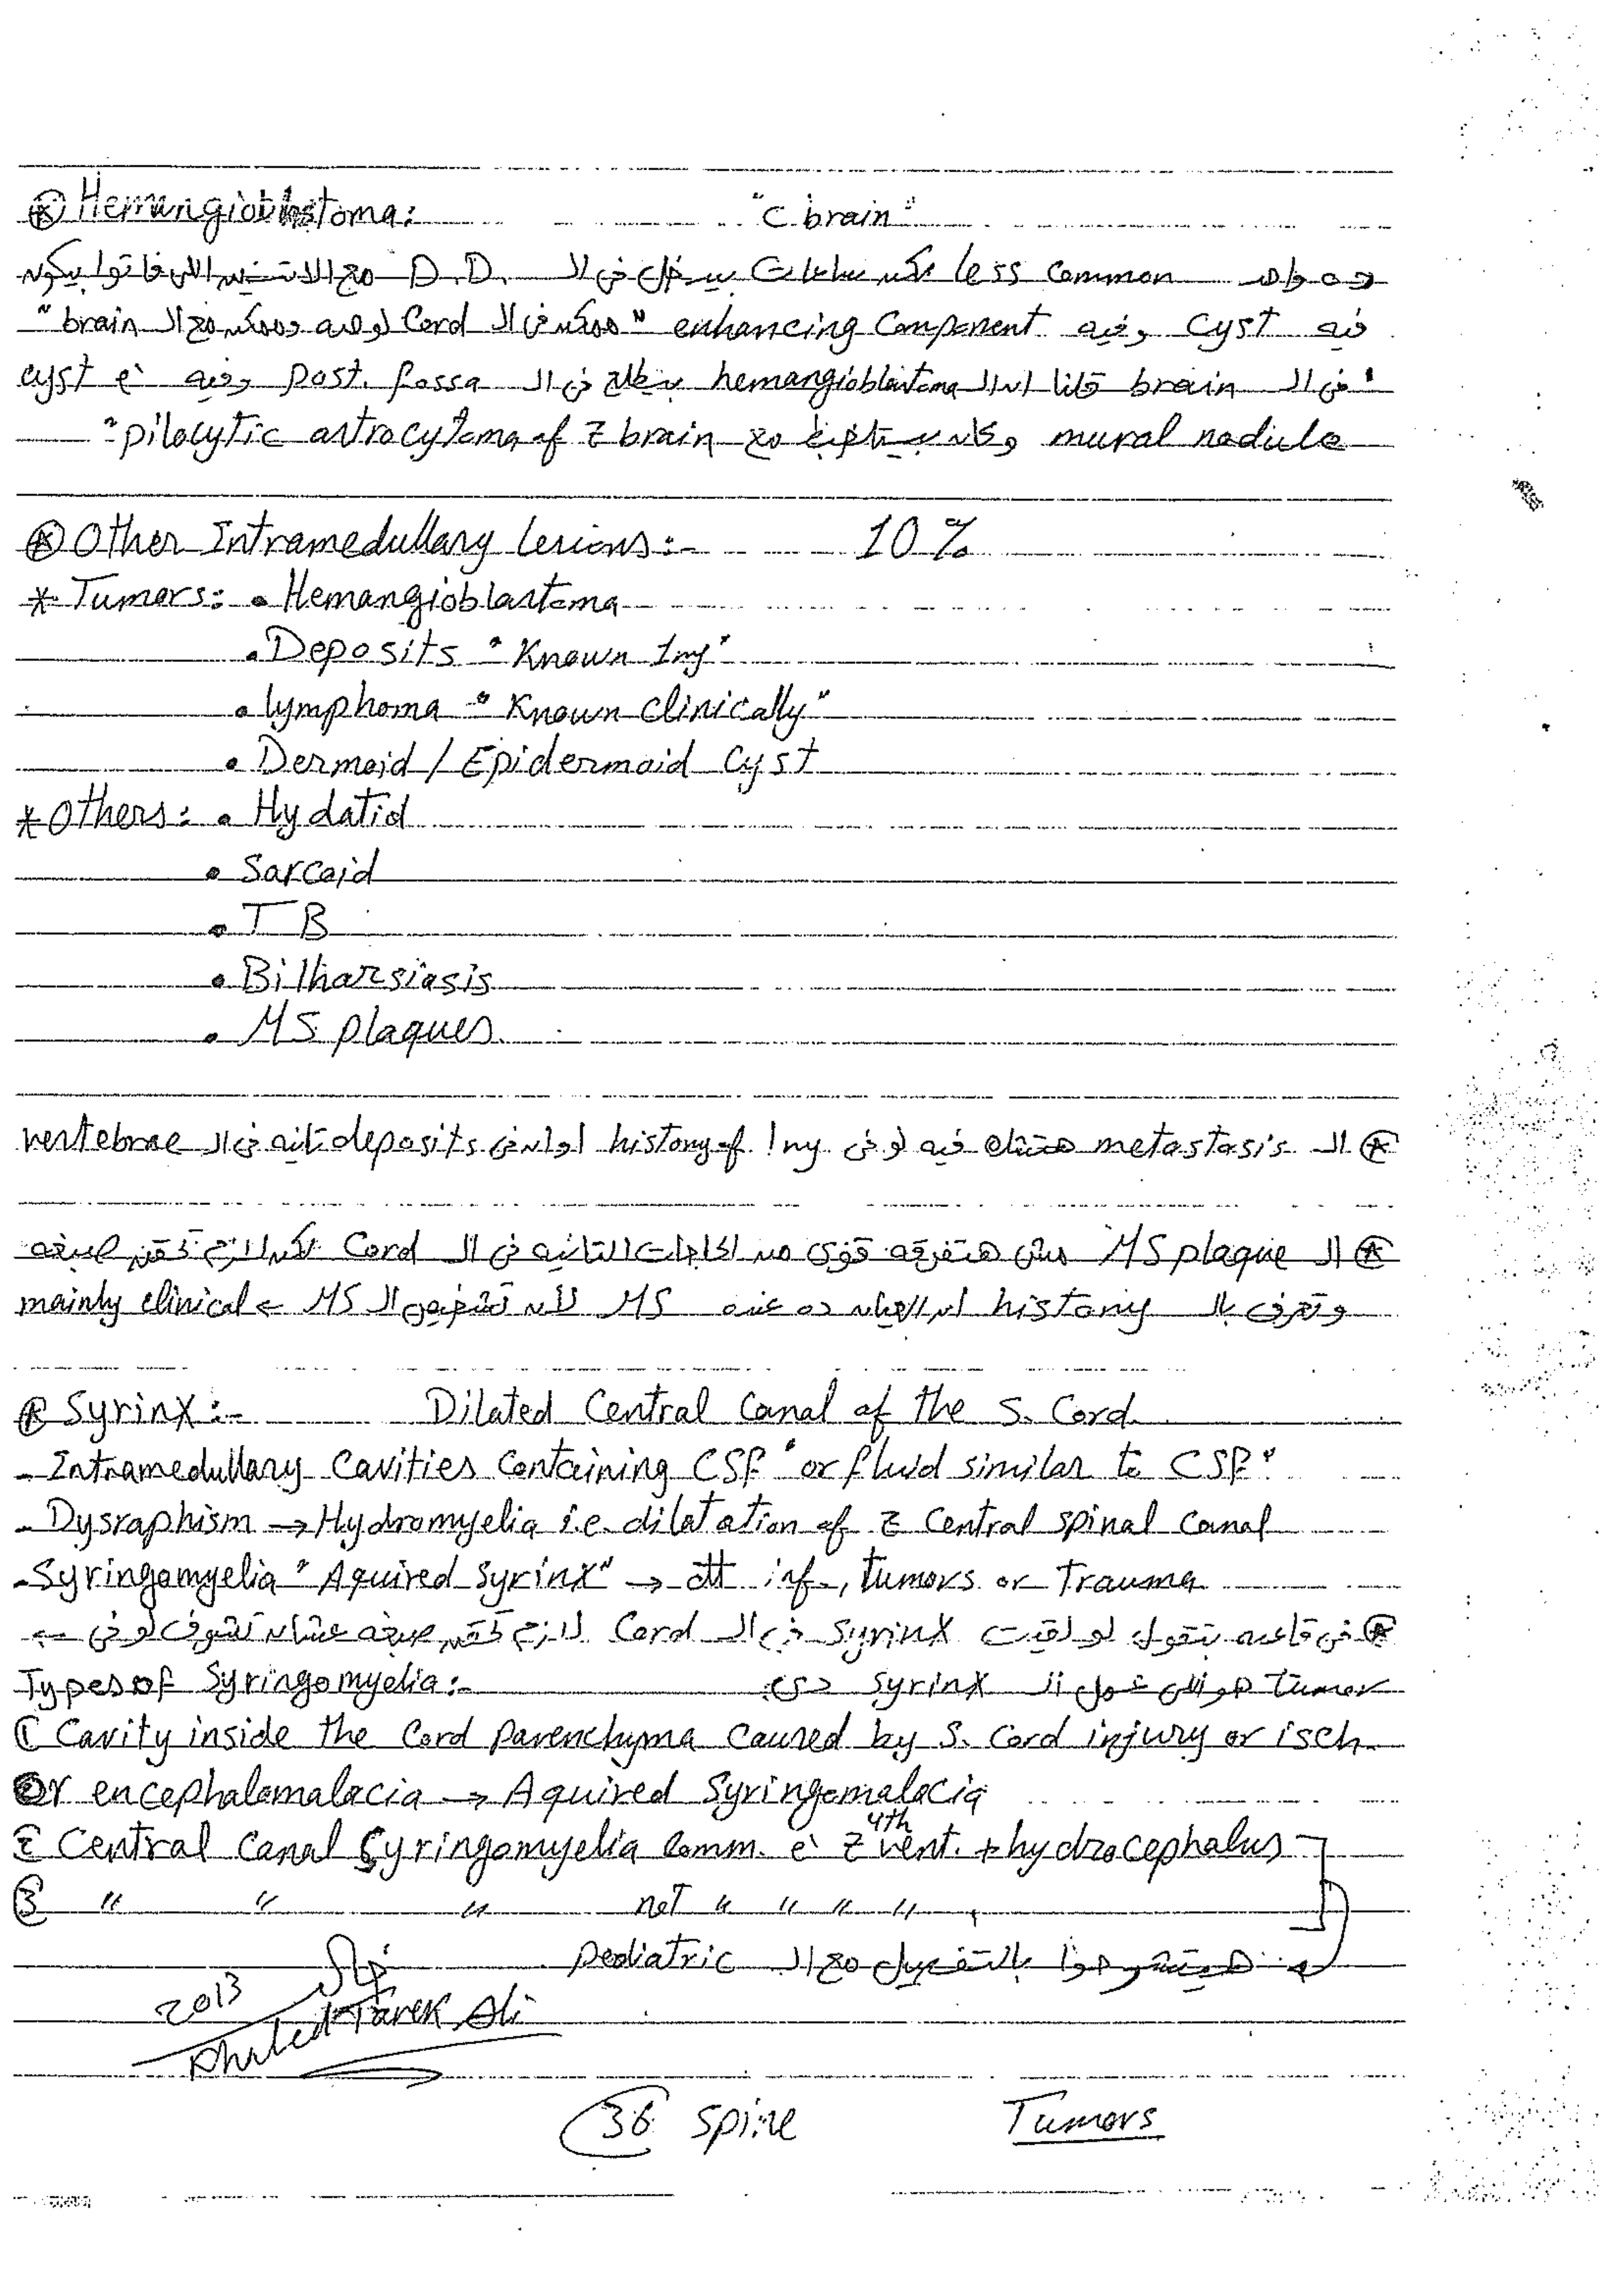 Hemangioblastoma: "C brain"
ده واحد less common لكن ساعات بيدخل فى الـ D.D. مع الاتنين اللى فاتوا بيكون
فيه cyst وفيه enhancing component "ممكن فى الـ Cord لوحده وممكن مع الـ brain"
"فى الـ brain قلنا ان الـ hemangioblastoma بيطلع فى الـ post. fossa وفيه cyst c̀
mural nodule وكان بيتلخبط مع pilocytic astrocytoma of z brain"
Other Intramedullary Lesions:- 10 %
* Tumors: • Hemangioblastoma
• Deposits "Known 1ry"
• lymphoma "Known clinically"
• Dermoid / Epidermoid Cyst
* Others: • Hydatid
• Sarcoid
• TB
• Bilharsiasis
• MS plaques
الـ metastasis هتشك فيه لو فى history of 1ry أو لو فى deposits تانيه فى الـ vertebrae
الـ MS plaque مش هتفرقه قوى من الحاجات التانيه فى الـ Cord لكن لازم تحقن صبغه
وتعرف بالـ history ان العيان ده عنده MS لأن تشخيص الـ MS ← mainly clinical
Syrinx:- Dilated Central Canal of the S. Cord
- Intramedullary Cavities Containing CSF "or fluid similar to CSF"
- Dysraphism → Hydromyelia i.e. dilatation of z Central spinal Canal
- Syringomyelia "Aquired Syrinx" → dtt inf., tumors or Trauma
فى قاعده بتقول لو لقيت Syrinx فى الـ Cord لازم تحقن صبغه عشان تشوف لو فى
Tumor هو اللى عمل الـ Syrinx دى.
Types of Syringomyelia:-
① Cavity inside the Cord parenchyma caused by S. Cord injury or isch.
Or encephalomalacia → Aquired Syringomalacia
② Central Canal Syringomyelia Comm. c̀ z 4th vent. + hydrocephalus
③ " " " not " " " "
هيتشرحوا بالتفصيل مع الـ pediatric
2013
Khaled Tarek Ali
36 Spine Tumors